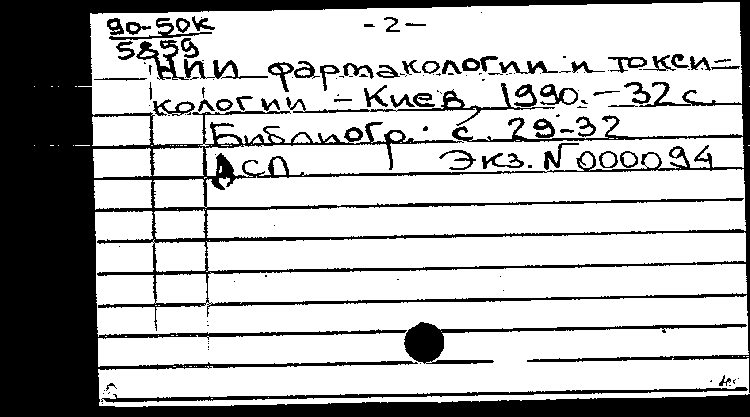 90-50К
5859
-2-
НИИ фармакологии и токси-
кологии - Киев, 1990. - 32 с.
Библиогр.: с. 29-32
ДСП. Экз. N 000094